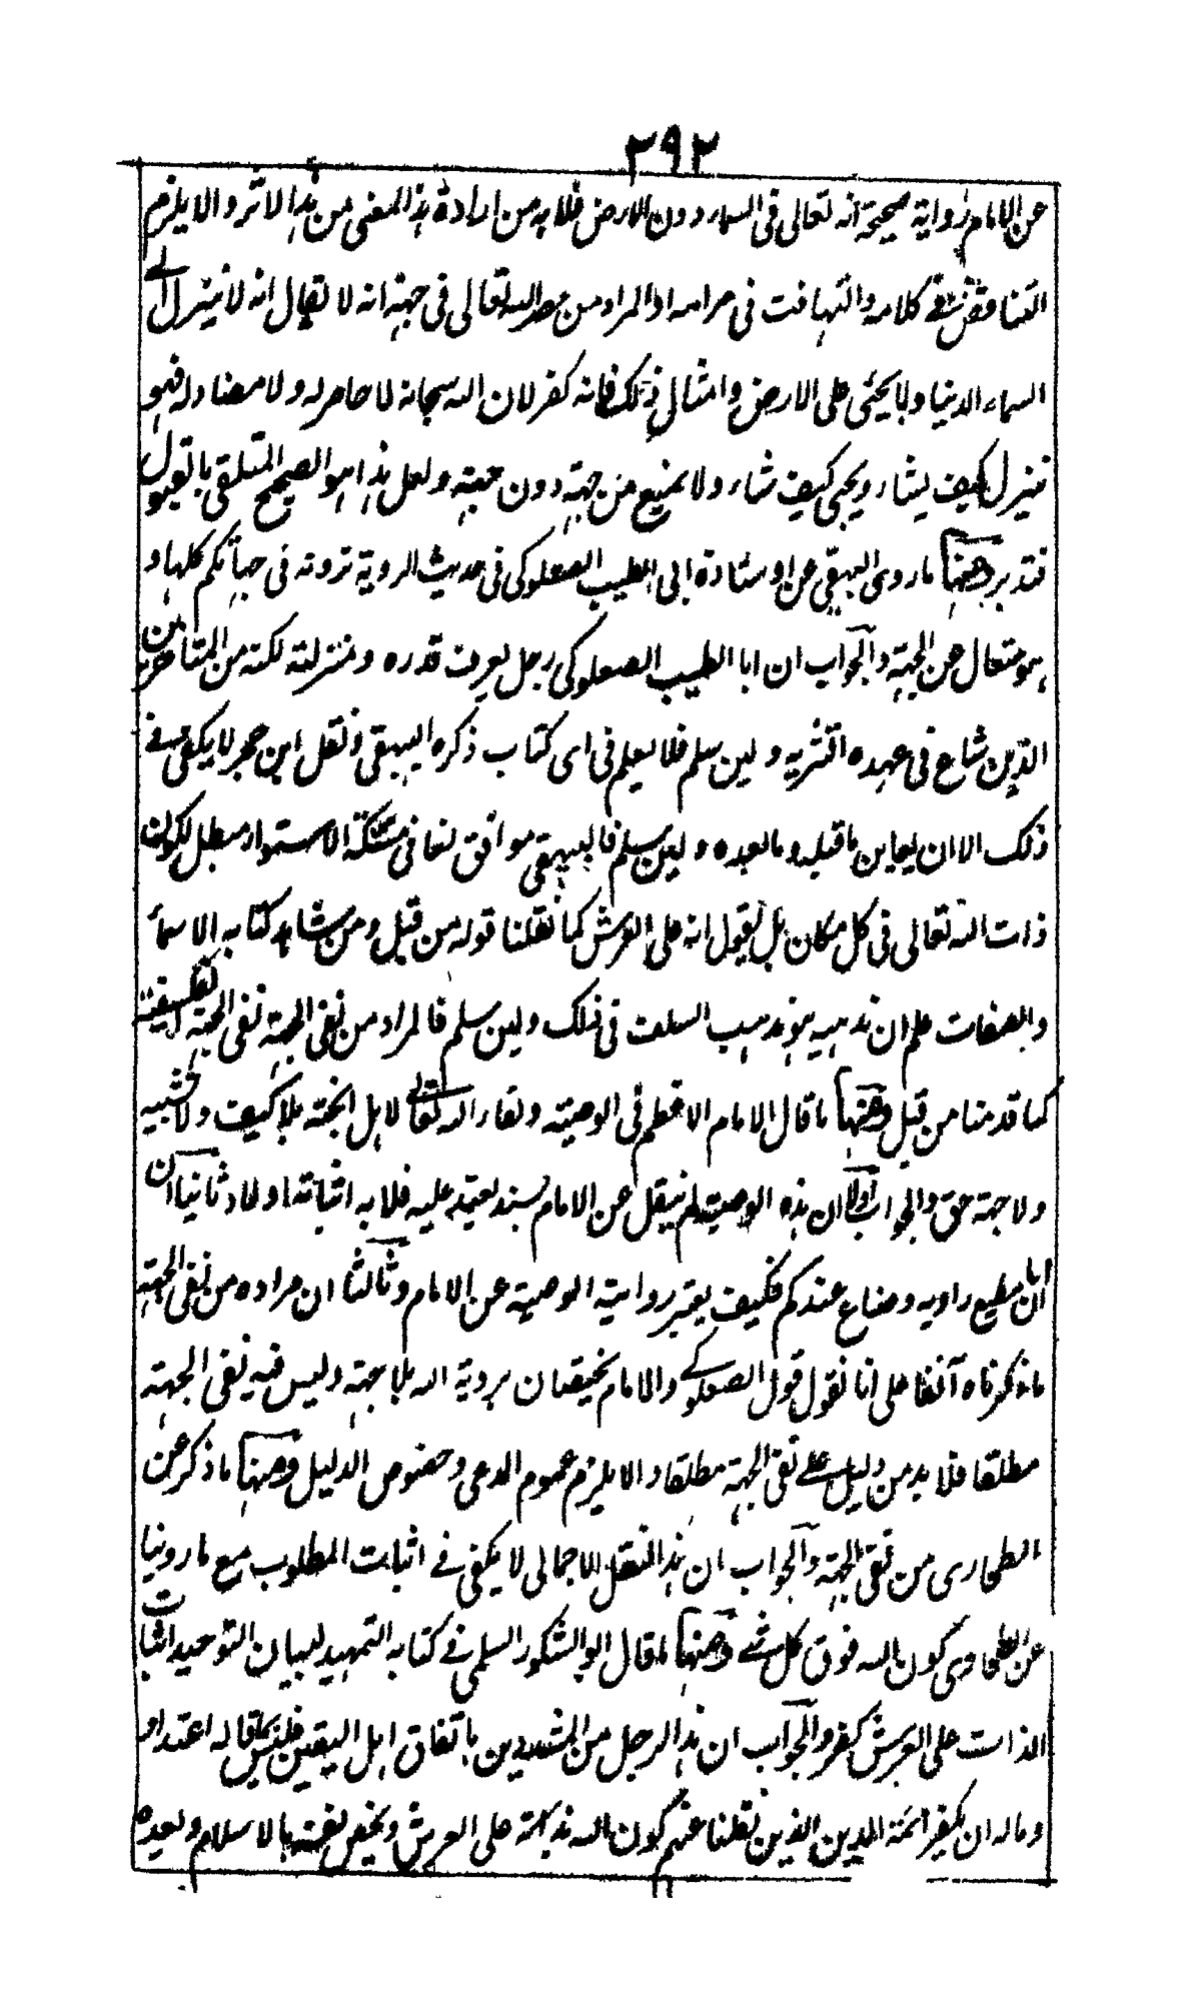 ٣٩٢
عن الامام رواية صحيحة انه تعالى فى السماء دون الارض فلابد من ارادة هذا المعنى من هذا الاثر والا يلزم
التناقض فى كلامه والتهافت فى مرامه اذ المراد من حصر الله تعالى فى جهة انه لا يقال انه لا ينزل الى
السماء الدنيا ولا يجئى على الارض وامثال ذلك فانه كفر لان الله سبحانه لا حاصر له ولا مضاد له فهو
ينزل كيف يشاء ويجئى كيف شاء ولا يمنع من جهة دون جهة ولعل هذا هو الصحيح المتلقى بالقبول
فتدبر ومنها ما روى البيهقى عن اوستاذه ابى الطيب الصعلوكى فى حديث الروية ترونه فى جهاتكم كلها و
هو متعال عن الجهة والجواب ان ابا الطيب الصعلوكى رجل يعرف قدره ومنزلته لكنه من المتأخرين
الذين شاع فى عهده التنزيه ولين سلم فلا يعلم فى اى كتاب ذكره البيهقى ونقل ابن حجر لا يكفى فى
ذلك الا ان يعاين ما قبله وما بعده ولين سلم فالبيهقى موافق لنا فى مسئلة الاستواء مبطل لكون
ذات الله تعالى فى كل مكان بل يقول انه على العرش كما نقلنا قوله من قبل ومن شاهد كتابه الاسماء
والصفات علم ان مذهبه هو مذهب السلف فى ذلك ولين سلم فالمراد من نفى الجهة نفى الجهة
كما قدمنا من قبل ومنها ما قال الامام الاعظم فى الوصية ولقاء الله تعالى لاهل الجنة بلا كيف ولا تشبيه
ولا جهة حق والجواب اولا ان هذه الوصية لم ينقل عن الامام بسند يعتمد عليه فلابد اثباتها اولا وثانيا ان
ابا مطيع راويه وضاع عندكم فكيف يعتبر رواية الوصية عن الامام وثالثا ان مراده من نفى الجهة
ما ذكرناه آنفا على انا نقول قول الصعلوكى والامام يخيصان بروية الله بلا جهة وليس فيه نفى الجهة
مطلقا فلابد من دليل على نفى الجهة مطلقا والا يلزم عموم المدعى وخصوص الدليل ومنها ما ذكر عن
الطحاوى من نفى الجهة والجواب ان هذا النقل الاجمالى لا يكفى فى اثبات المطلوب مع ما روينا
عن الطحاوى كون الله فوق كل شئ ومنها ما قال ابو الشكور السلمى فى كتابه التمهيد لبيان التوحيد اثبات
الذات على العرش كفر والجواب ان هذا الرجل من المشددين باتفاق اهل اليقين فليس لما قاله اعتداد
وماله ان يكفر ائمة الدين الذين نقلنا عنهم كون الله بذاته على العرش ويخص نفسه بالاسلام وبعده